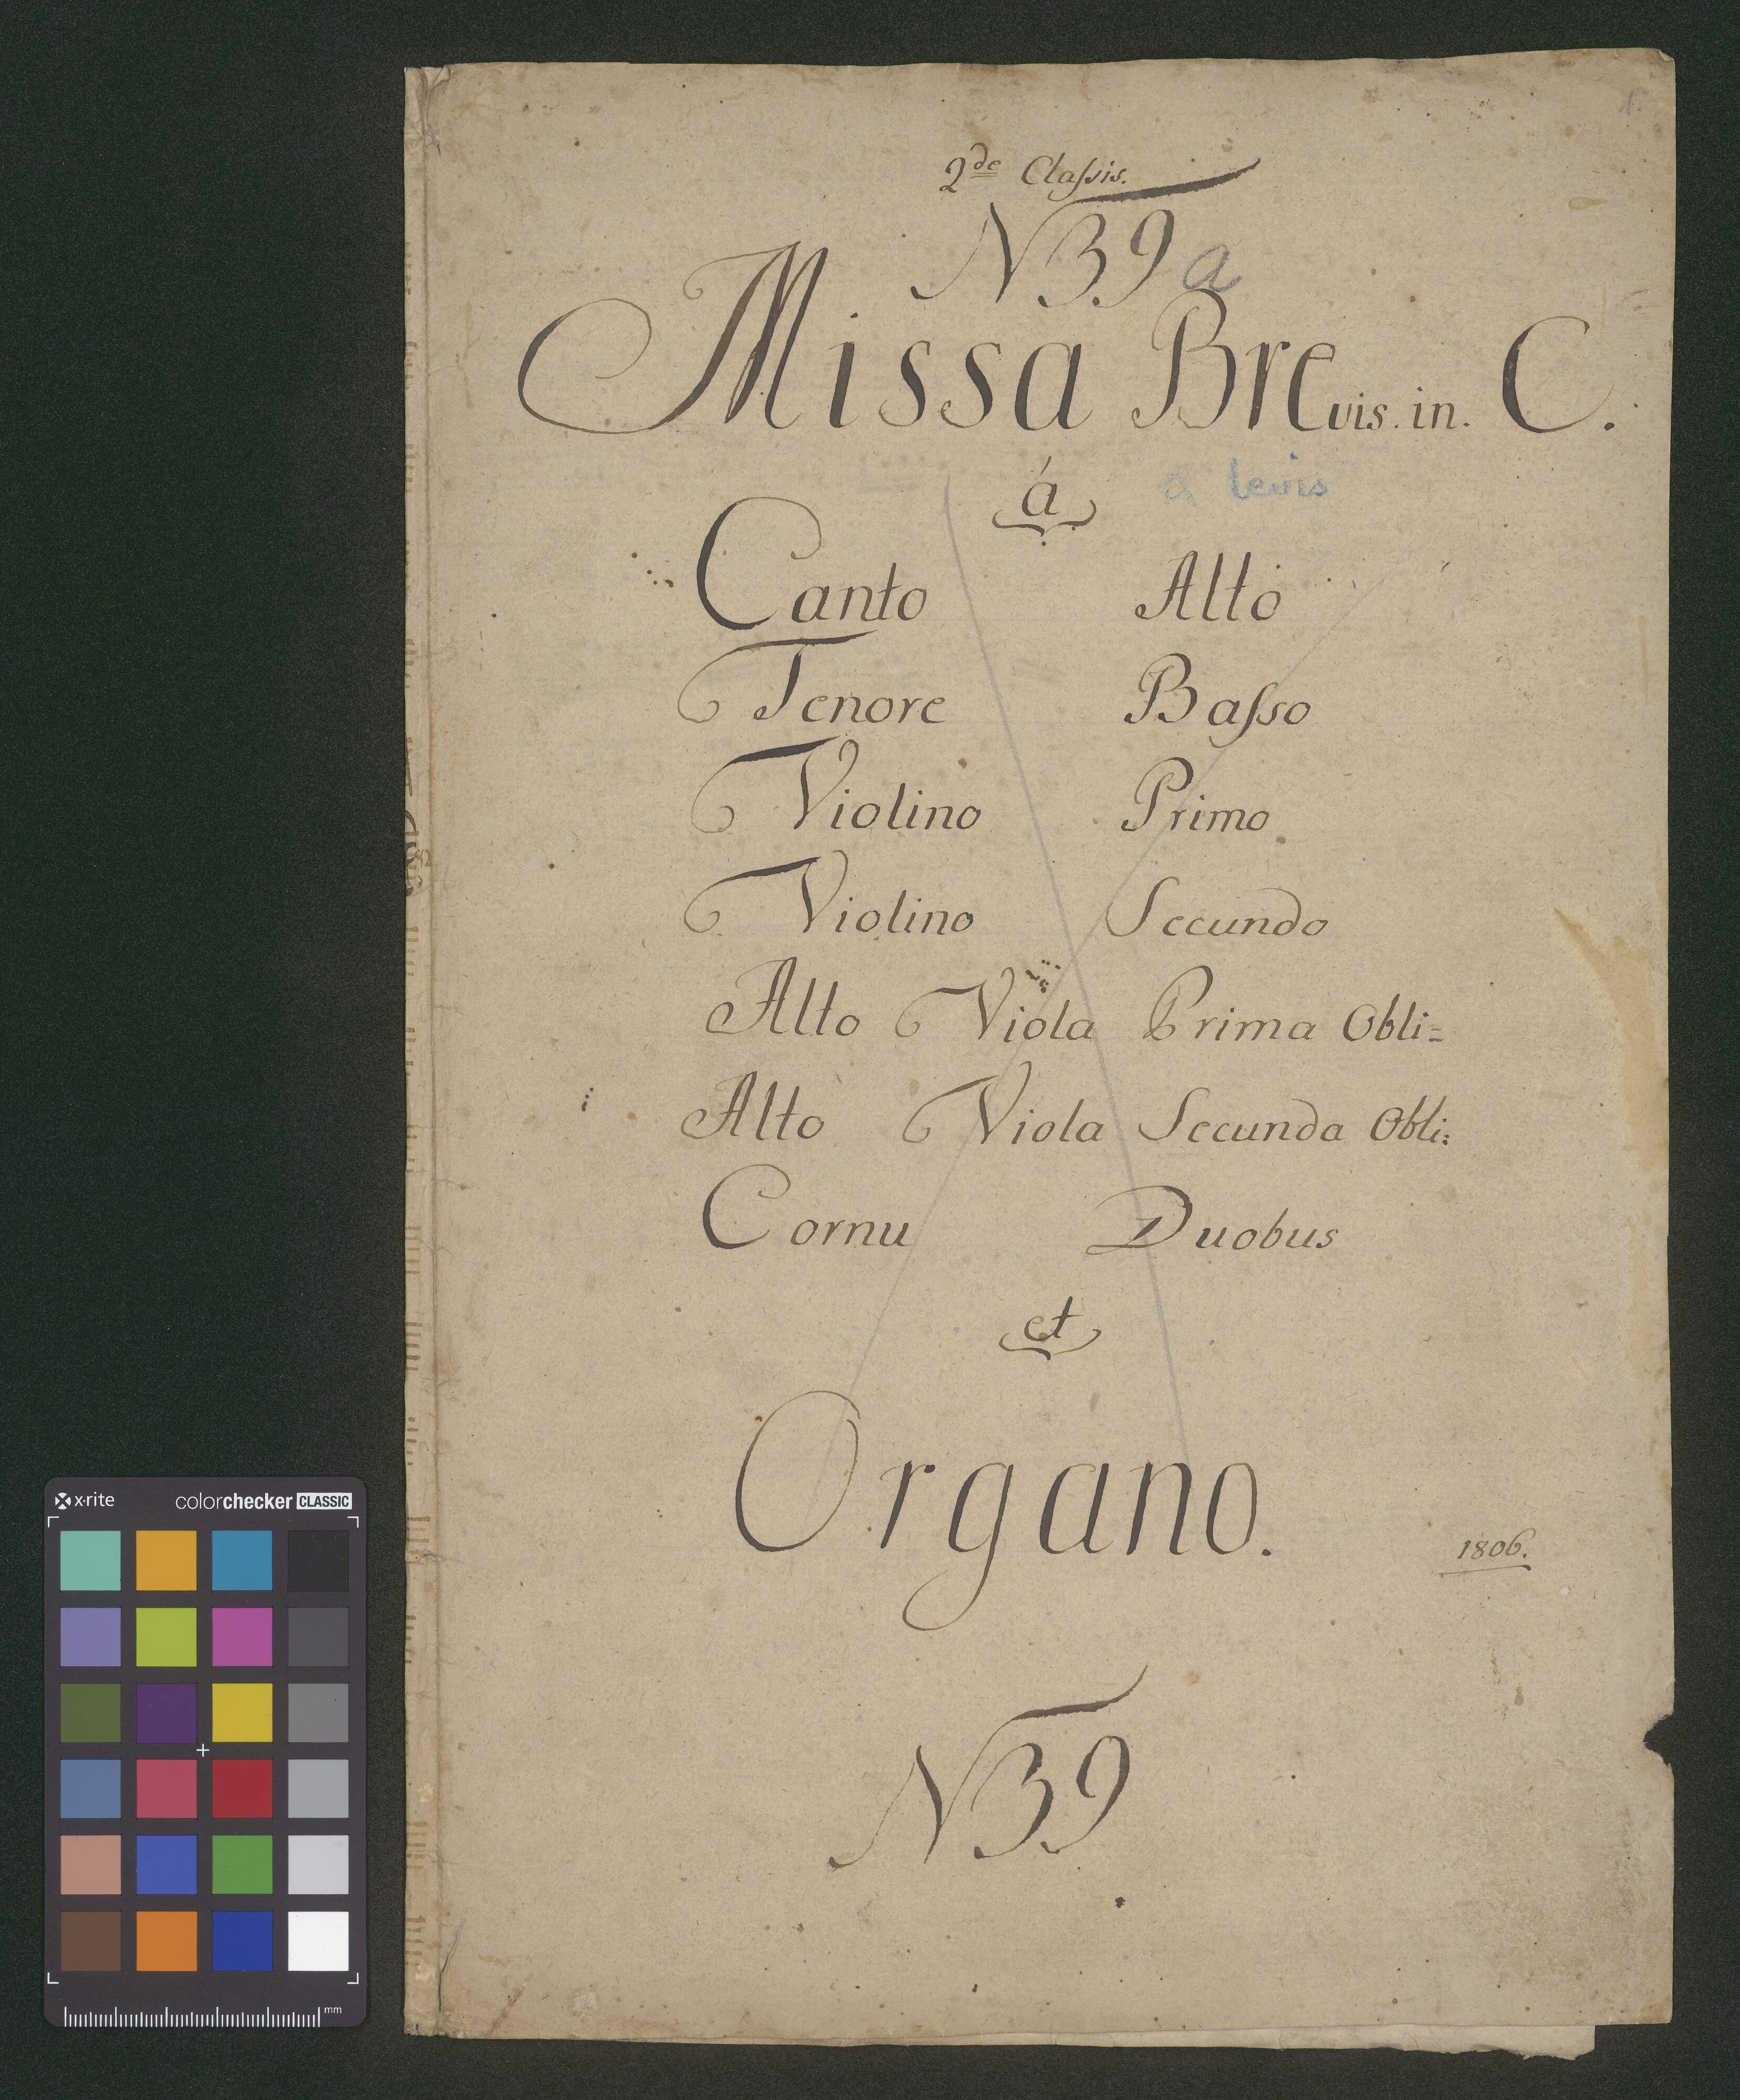 2de Claſsis.
N39 a
Missa Brevis. in. C.
á
a levis
Canto Alto
Tenore Baſso
Violino Primo
Violino Secundo
Alto Viola Prima Obli=
Alto Viola Secunda Obli:
Cornu Duobus
et
Organo.
1806.
N39
x-rite colorchecker CLASSIC
mm